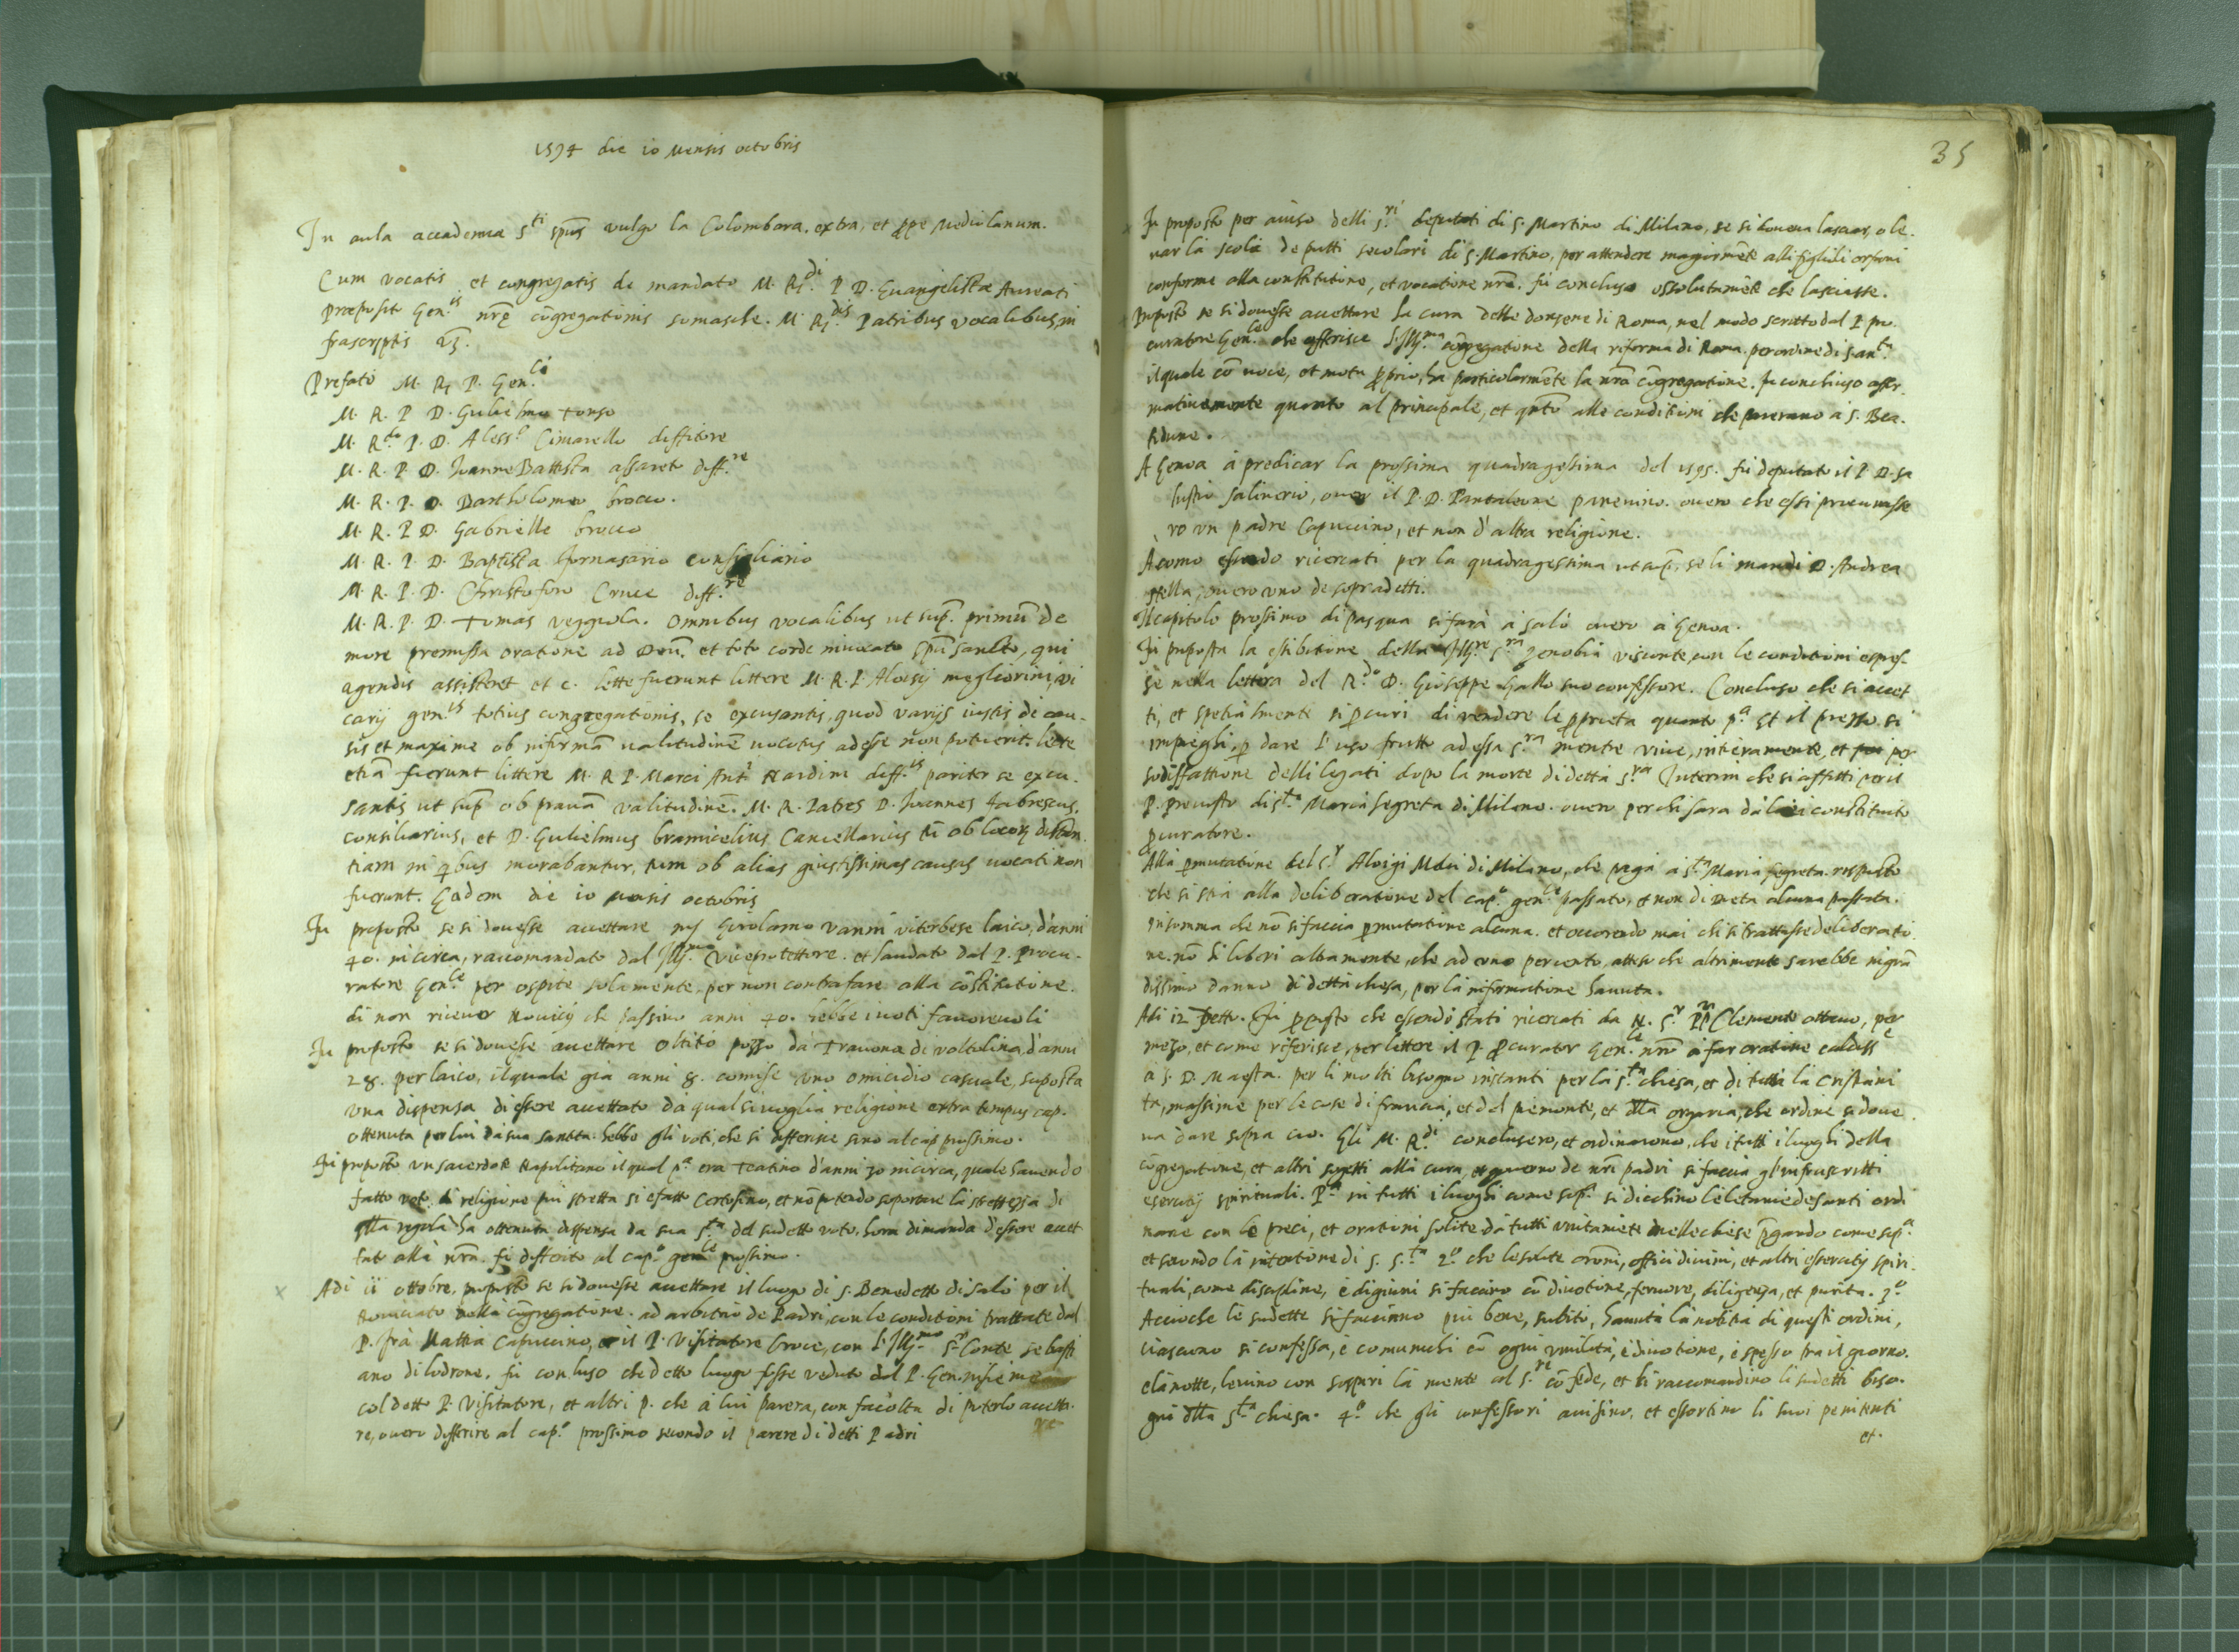 1594 die 10 Mensis octobris
In aula accademia S.ti spũs vulgo la Colombara, extra, et ꝓpe Mediolanum.
Cum vocatis, et congregatis de mandato M. R.di P D. Euangelistæ Aureati
Præposit. Gen.is nr̃ę cõgregationis somasche. M. R.dis Patribus vocalibus, in
frascriptis
Prefato M. R. P. Gen.li
M. R. P D. Gulielmo Tonso
M. R.do P. D. Aless.o Cimarello diffitore
M. R. P D. Joanne Battista assareto diff.re
M. R. P. D. Bartholomeo brocco.
M. R. P D. Gabrielle brocco
M. R. P. D. Baptista fornasario consigliario
M. R. P. D. Christoforo Cruce diff.re
M. R. P. D. Tomas veggiola. Omnibus vocalibus ut sup̃. primũ de
more premissa oratione ad Deũ. et toto corde inuocato spũ sancto, qui
agendis assisteret et c. lette fuerunt littere M. R. P. Aloisij megliorini, vi
carij gen.is totius congregationis, se excusantis, quod varijs iustis de cau-
sis et maxime ob infirmã ualitudinẽ uocatus adesse non potuerit. lecte
etiã fuerunt littere M. R P. Marci Ant. Nardini diff.is pariter se excu-
santis ut sup̃ ob prauã valitudinẽ. M. R. Patres D. Joannes fabrescus,
consiliarius, et D. Gulielmus bramicelius Cancellarius tũ ob locorũ distan
tiam in qbus morabantur, tum ob alias giustissimas causas uocati non
fuerunt. Eadem die 10 mensis octobris
Fu proposto se si douesse accettare Girolamo vanni viterbese laico, d'anni
40. in circa, raccomandato dal Ill.mo viceprotettore. et laudato dal P. Procu-
ratore Gen.le per ospite solamente, per non contrafare alla cõstitutione.
di non riceuer Nouicij che passino anni 40. hebbe i uoti fauoreuoli
Fu proposto se si douesse accettare pozzo da Trauona di voltolina, d'anni
28. per laico, il quale gia anni 8. comise uno omicidio casuale, suposta
vna dispensa di essere accettato da qualsiuoglia religione extra tempus cap.
ottenuta per lui da sua santita. hebbe gli voti, che si differisce sino al cap. prossimo.
Fu proposto un sacerdote Napolitano il qual p.a era Teatino d'anni 30 in circa, quale hauendo
fatto voto di religione piu stretta si è fatto Certosino, et nõ potendo soportare la strettezza di
q̃lla regola ha ottenuta dispensa da sua S.ta del sudetto voto, hora dimanda d'essere accet
tato alla nr̃a. fu differito al cap.o gen.le prossimo.
Adi 11 ottobre. proposto se si douesse accettare il luogo di S. Benedetto di salò per il
Nouiciato nella cõgregatione. ad arbitrio de Padri, con le conditioni trattate dal
P. frà Mattia Capuccino, et il P. Visitatore Croce, con l'Ill.mo S.r Conte sebasti
ano di lodrone. fù concluso che detto luogo fosse veduto dal P. Gen. insieme
col detto P. Visitatore, et altri p. che à lui parera, con facolta di poterlo accetta-
re, ouero differire al cap.o prossimo secondo il parere di detti Padri
35
Fu proposto per auiso delli S.ri deputati di S. Martino di Milano, se si doueua lasciar, o le.
uar la scola de putti secolari di S. Martino, per attendere magiormẽte alli figliuli orfani
conforme alla constitutione, et vocatione nr̃a. fù concluso assolutamẽte che lasciasse.
Proposto se si douesse accettare la cura delle donzene di Roma, nel modo scritto dal P pro.
curatore Gen.le che offerisce l'Ill.ma cõgregatione della riforma di Roma. per ordine di S. an.ta
il quale cõ uoce, et motu ꝓprio, ha particolarmẽte la nr̃a cõgregatione. Fu conchiuso affir.
matiuamente quanto al principale, et qnto alle conditioni che parerano à S. Bea.
titudine.
A Genoa à predicar la prossima quadragesima del 1595. fù deputato il P D. Sa
lustio salinerio, ouer il P. D. Pantaleone panenino. ouero che essi procurasse
ro vn padre Capuccino, et non d'altra religione.
A como essendo ricercati per la quadragesima ut sup̃, se li mandi D. Andrea
stella, ouero uno de sopradetti.
Il capitolo prossimo di pasqua si farà à salò ouero à Genoa.
Fu proposta la esibitione della Ill.re S.ra Zenobia visconte, con le conditioni espres-
se nella lettera del R.do D. Giuseppe Gallo suo confessore. Concluso che si accet
ti, et spetialmente si ꝓcuri di vendere le ꝓprieta quanto p.a Et il prezzo si
impieghi, ꝑ dare l'uso frutto ad essa S.ra mentre viue, intieramente, et poi per
sodisfattione delli legati dopo la morte di detta S.ra Interim che si affitti per il
P. preuosto di S.ta Maria segreta di Milano. ouero per chi sara da lei constituito
ꝓcuratore.
Alla ꝑmutatione del S.r Aloigi di Milano, che paga à S.ta Maria segreta. risposto
che si stia alla deliberatione del cap.o gen.le passato, et non di dieta alcuna passata.
Insomma che nõ si faccia ꝑmutatione alcuna. et occorendo mai chi si trattasse de liberatio
ne. nõ si liberi altramente, che ad uno per cento, atteso che altrimente sarebbe in grã
dissimo danno di detta chiesa, per la informatione hauuta.
Adi 12 detto. Fu ꝓposto che essendo stati ricercati da N. S.r PP Clemente ottauo, per
mezo, et come riferisce, per lettere il P. ꝓcurator Gen.le nr̃o à far oratione caldiss.e
à S. D. Maesta. per li molti bisogni instanti per la S.ta chiesa, et di tutta la Cristiani
ta, massime per le cose di francia, et del piemonte, et dlla ongaria, che ordine si doue
ua dare sopra cio. Gli M. R.di conclusero, et ordinarono, che i tutti i luoghi della
cõgregatione, et altri sogetti alla cura, et gouerno de nr̃i padri si faccia gl'infrascritti
esercitij spirituali. P.a in tutti i luoghi come sop.a si dicchino le letanie de santi ordi
narie con le preci, et orationi solite da tutti vnitamẽte nelle chiese p̃gando come sop.a
et secondo la intentione di S. S.ta 2.o che le solite oroni, officij diuini, et altri essercitij spiri.
tuali, come discipline, e digiuni si faccino cũ diuotione, feruore, diligenza, et purita. 3.o
Accioche le sudette si faccianno piu bene, subito, hauuta la notitia di questi ordini,
ciascuno si confessa, è comunichi cõ ogni vmilita, è diuotione, è spesso fra il giorno.
e la notte, leuino con sospiri la mente al S.re cõ fede, et li raccomandino li sudetti biso-
gni dlla S.ta chiesa. 4.o che gli confessori auisino, et essortino li suoi penitenti
et.